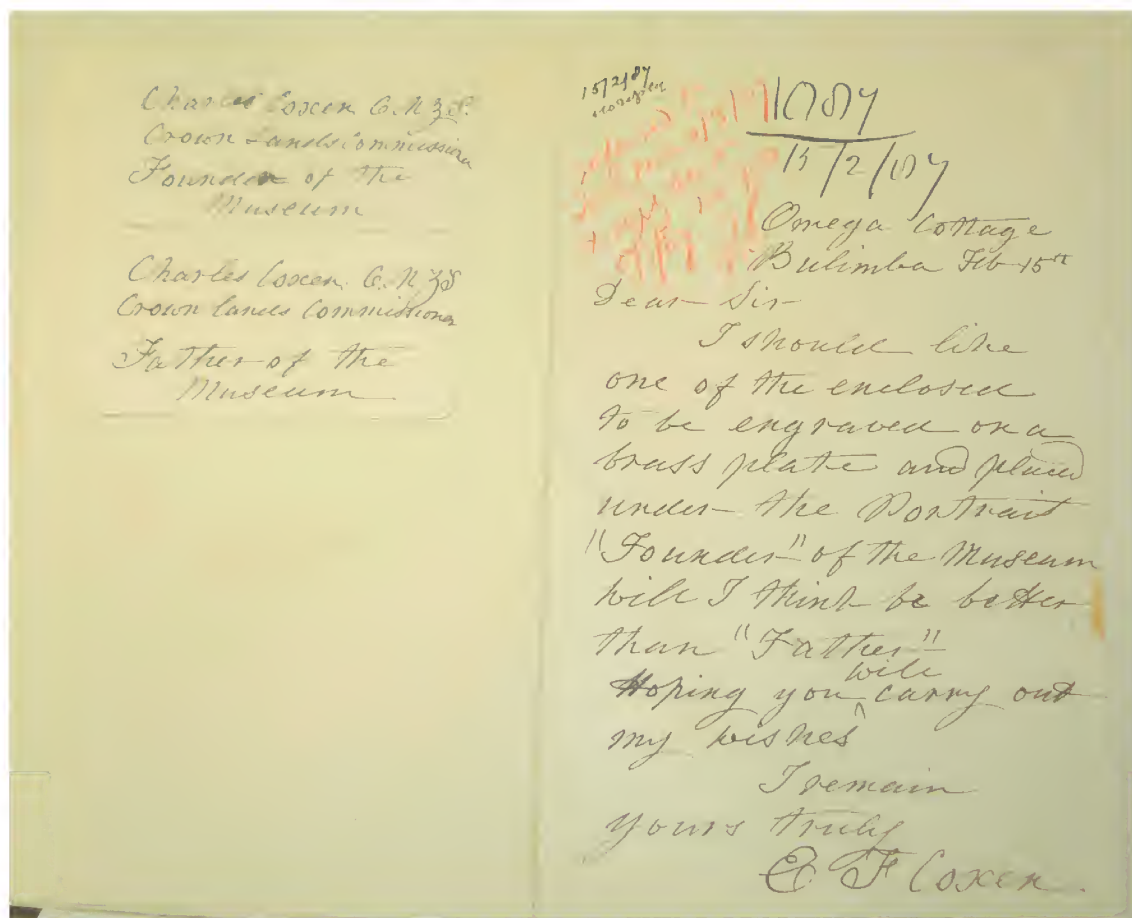 Charles Coxen C.M.Z.S.
Crown Lands Commissioner
Founder of the
Museum
Charles Coxen C.M.Z.S
Crown Lands Commissioner
Father of the
Museum
15/2/87
1087
15/2/87
Omega Cottage
Bulimba Feb 15th
Dear Sir
I should like
one of the enclosed
to be engraved on a
brass plate and placed
under the Portrait
"Founder" of the Museum
will I think be better
than "Father"
will
Hoping you ^ carry out
my wishes
I remain
yours truly
E F Coxen.